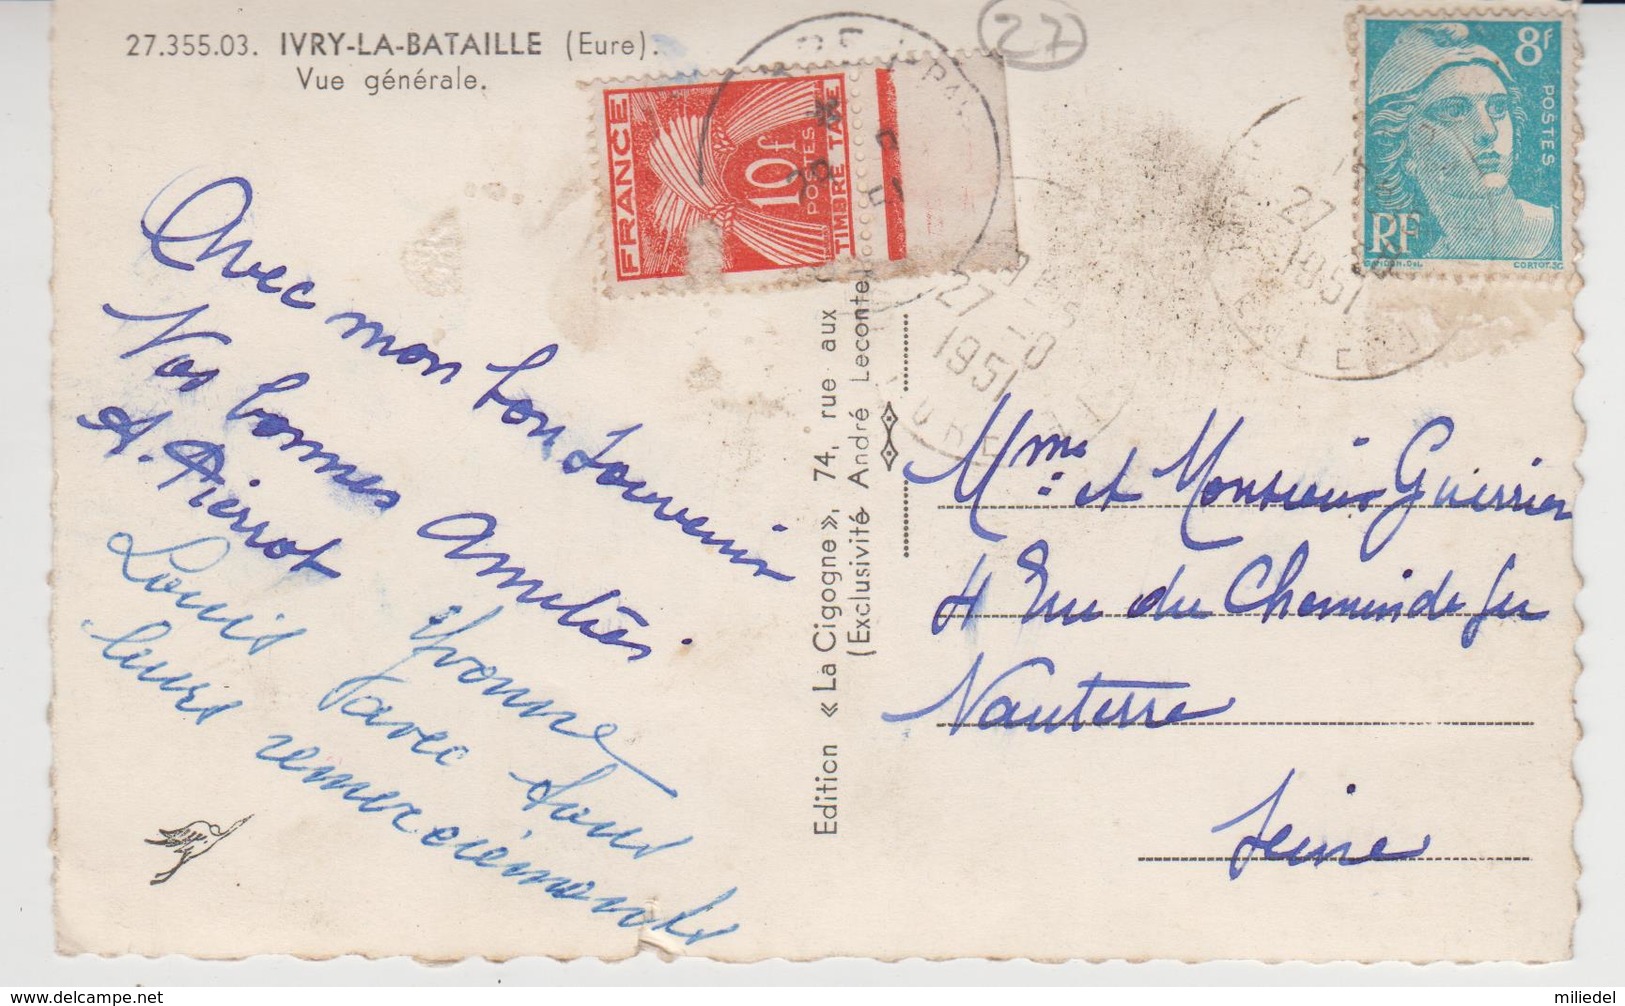 27.355.03. IVRY-LA-BATAILLE (Eure).
Vue générale.
27
FRANCE
10f
POSTES
TIMBRE TAXE
8f
POSTES
RF
GANDON.DEL
CORTOT.SC
27
1951
27
1951
EURE
Avec mon bon souvenir
Vos bonnes Amitiés
A. Pierrot
Louis Yvonne
avec tous
leurs remerciements
Edition « La Cigogne », 74, rue aux
(Exclusivité André Leconte)
Mme et Monsieur Guerrier
4 Rue du Chemin de fer
Nanterre
Seine
miliedel